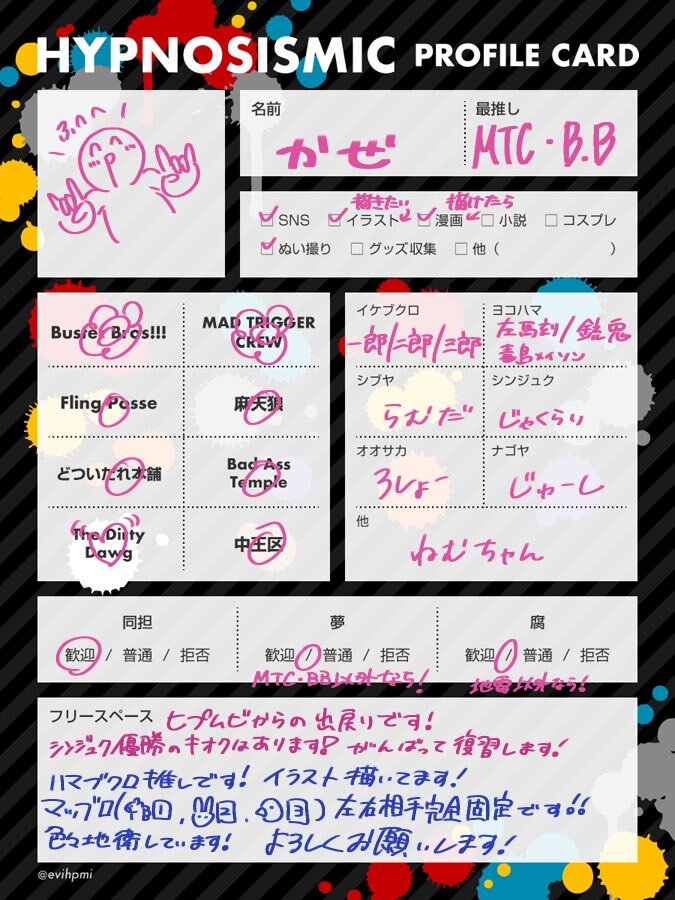 HYPNOSISMIC PROFILE CARD
3.ハハ
名前
かぜ
最推し
MTC・B.B
描きたい 描けたら
SNS イラスト 漫画 小説 コスプレ
ぬい撮り グッズ収集 他( )
Buster Bros!!!
MAD TRIGGER CREW
Fling Posse
麻天狼
どついたれ本舗
Bad Ass Temple
The Dirty Dawg
中王区
イケブクロ
一郎/二郎/三郎
ヨコハマ
左馬刻/銃兎
毒島メイソン
シブヤ
らむだ
シンジュク
じゃくらい
オオサカ
ろしょー
ナゴヤ
じゅーし
他
ねむちゃん
同担
歓迎 / 普通 / 拒否
夢
歓迎 / 普通 / 拒否
MTC・BB以外なら!
腐
歓迎 / 普通 / 拒否
地雷以外なら!
フリースペース ヒプムビからの出戻りです!
シンジュク優勝のキオクはあります!? がんばって復習します!
ハマブクロ推しです! イラスト描いてます!
マップロ( 左右相手完全固定です!!
色々地衛しています! よろしくお願いします!
@evihpmi